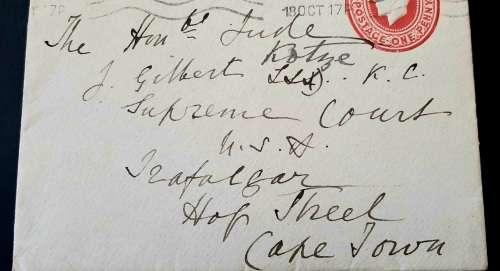 7P
18 OCT 17
POSTAGE·ONE·PENNY
The Hon ble Jude
Kotze
J. Gilbert K. C.
Supreme Court
U. S. A.
Trafalgar
Hof Street
Cape Town